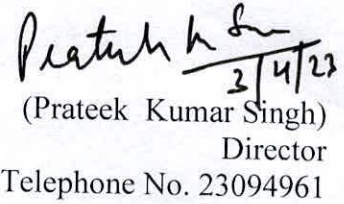 Prateek K Sn
3/4/23
(Prateek Kumar Singh)
Director
Telephone No. 23094961